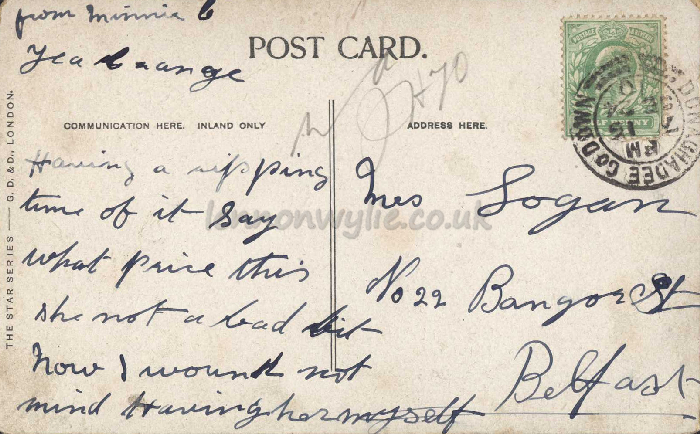 from Minnie
POST CARD.
COMMUNICATION HERE. INLAND ONLY
Having a ripping
time of it Say
what price this
she not a bad bit
now I wount not
mind Having her myself
ADDRESS HERE.
Mrs Logan
No 22 Bangor St
Belfast
THE STAR SERIES — G. D. & D., LONDON.
DONAGHADEE CO DOWN
lennonwylie.co.uk